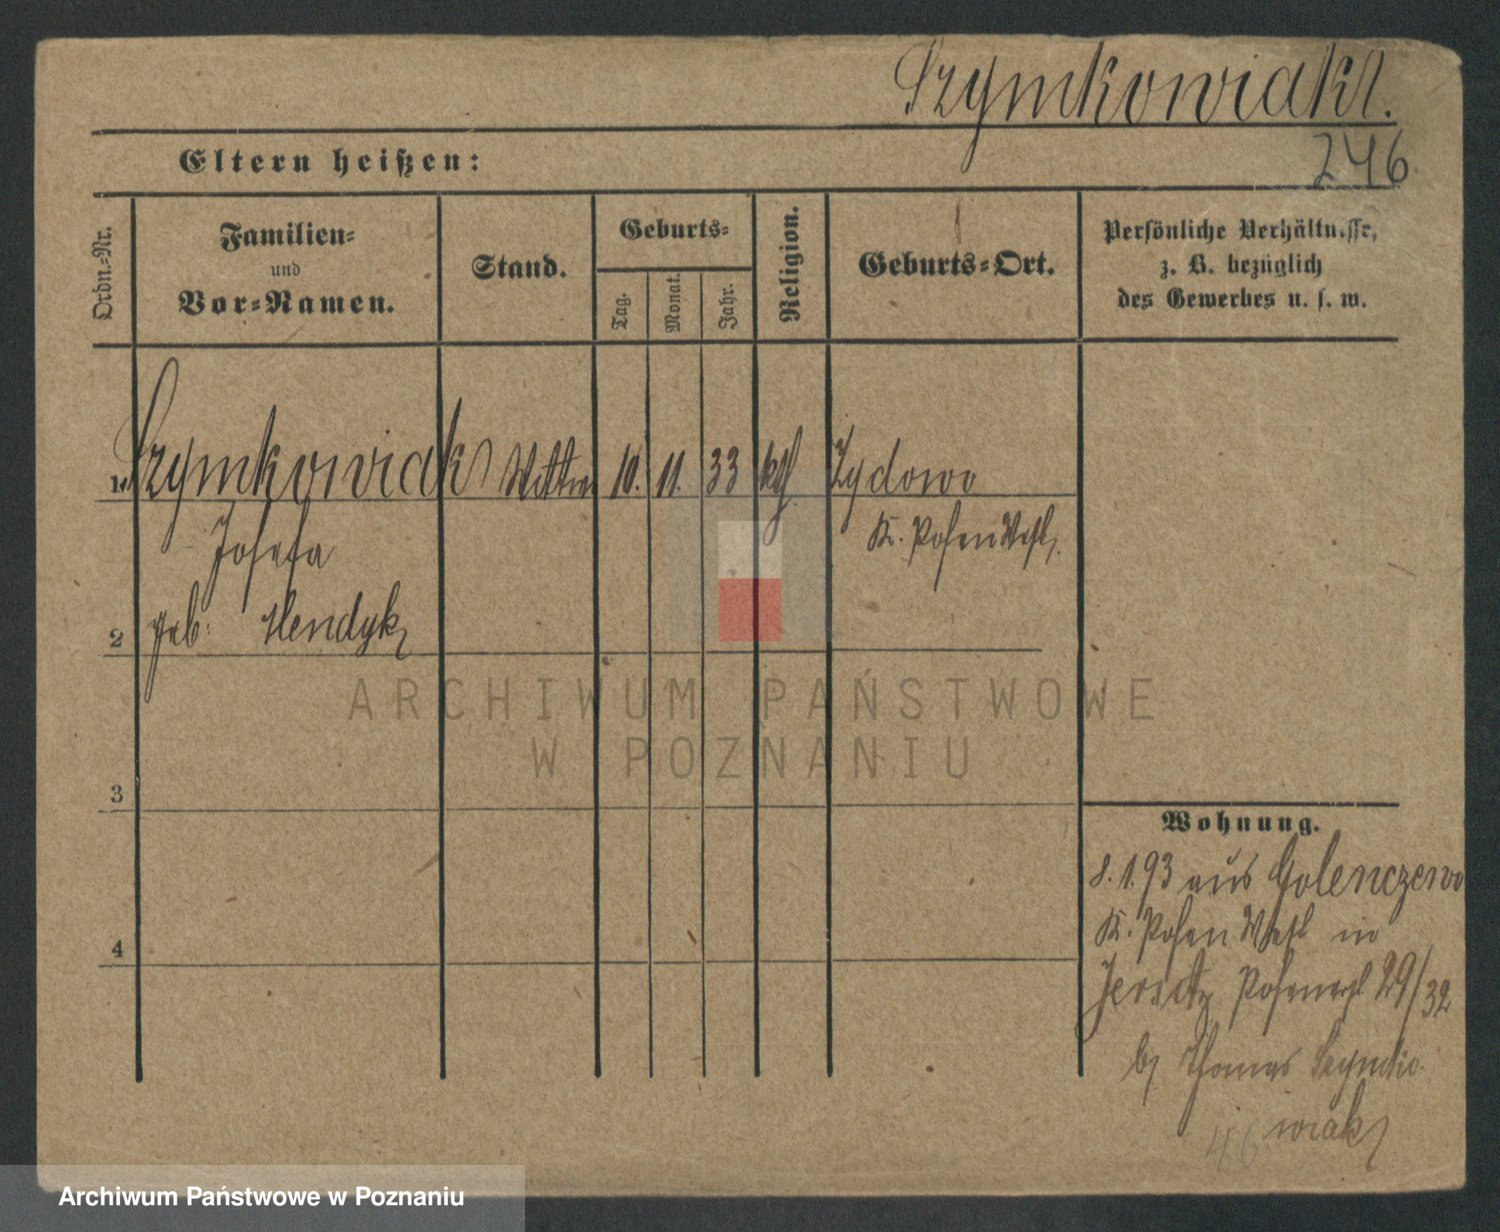 Szymkowiak.
246.
Eltern heißen:
Ordn.-Nr.
Familien-
und
Vor-Namen.
Stand.
Geburts-
Tag.
Monat.
Jahr.
Religion.
Geburts-Ort.
Persönliche Verhältnisse,
z. B. bezüglich
des Gewerbes u. s. w.
1. Szymkowiak Wittwe 10. 11. 33 kth Zydowo
Josefa
Kr. Posen West.
2 geb. Hendyk
ARCHIWUM PAŃSTWOWE
W POZNANIU
3
4
Wohnung.
8.1.93 aus Golenczewo
Kr. Posen West in
Jersitz 29/32
b/ Thomas
wiak
46
Archiwum Państwowe w Poznaniu